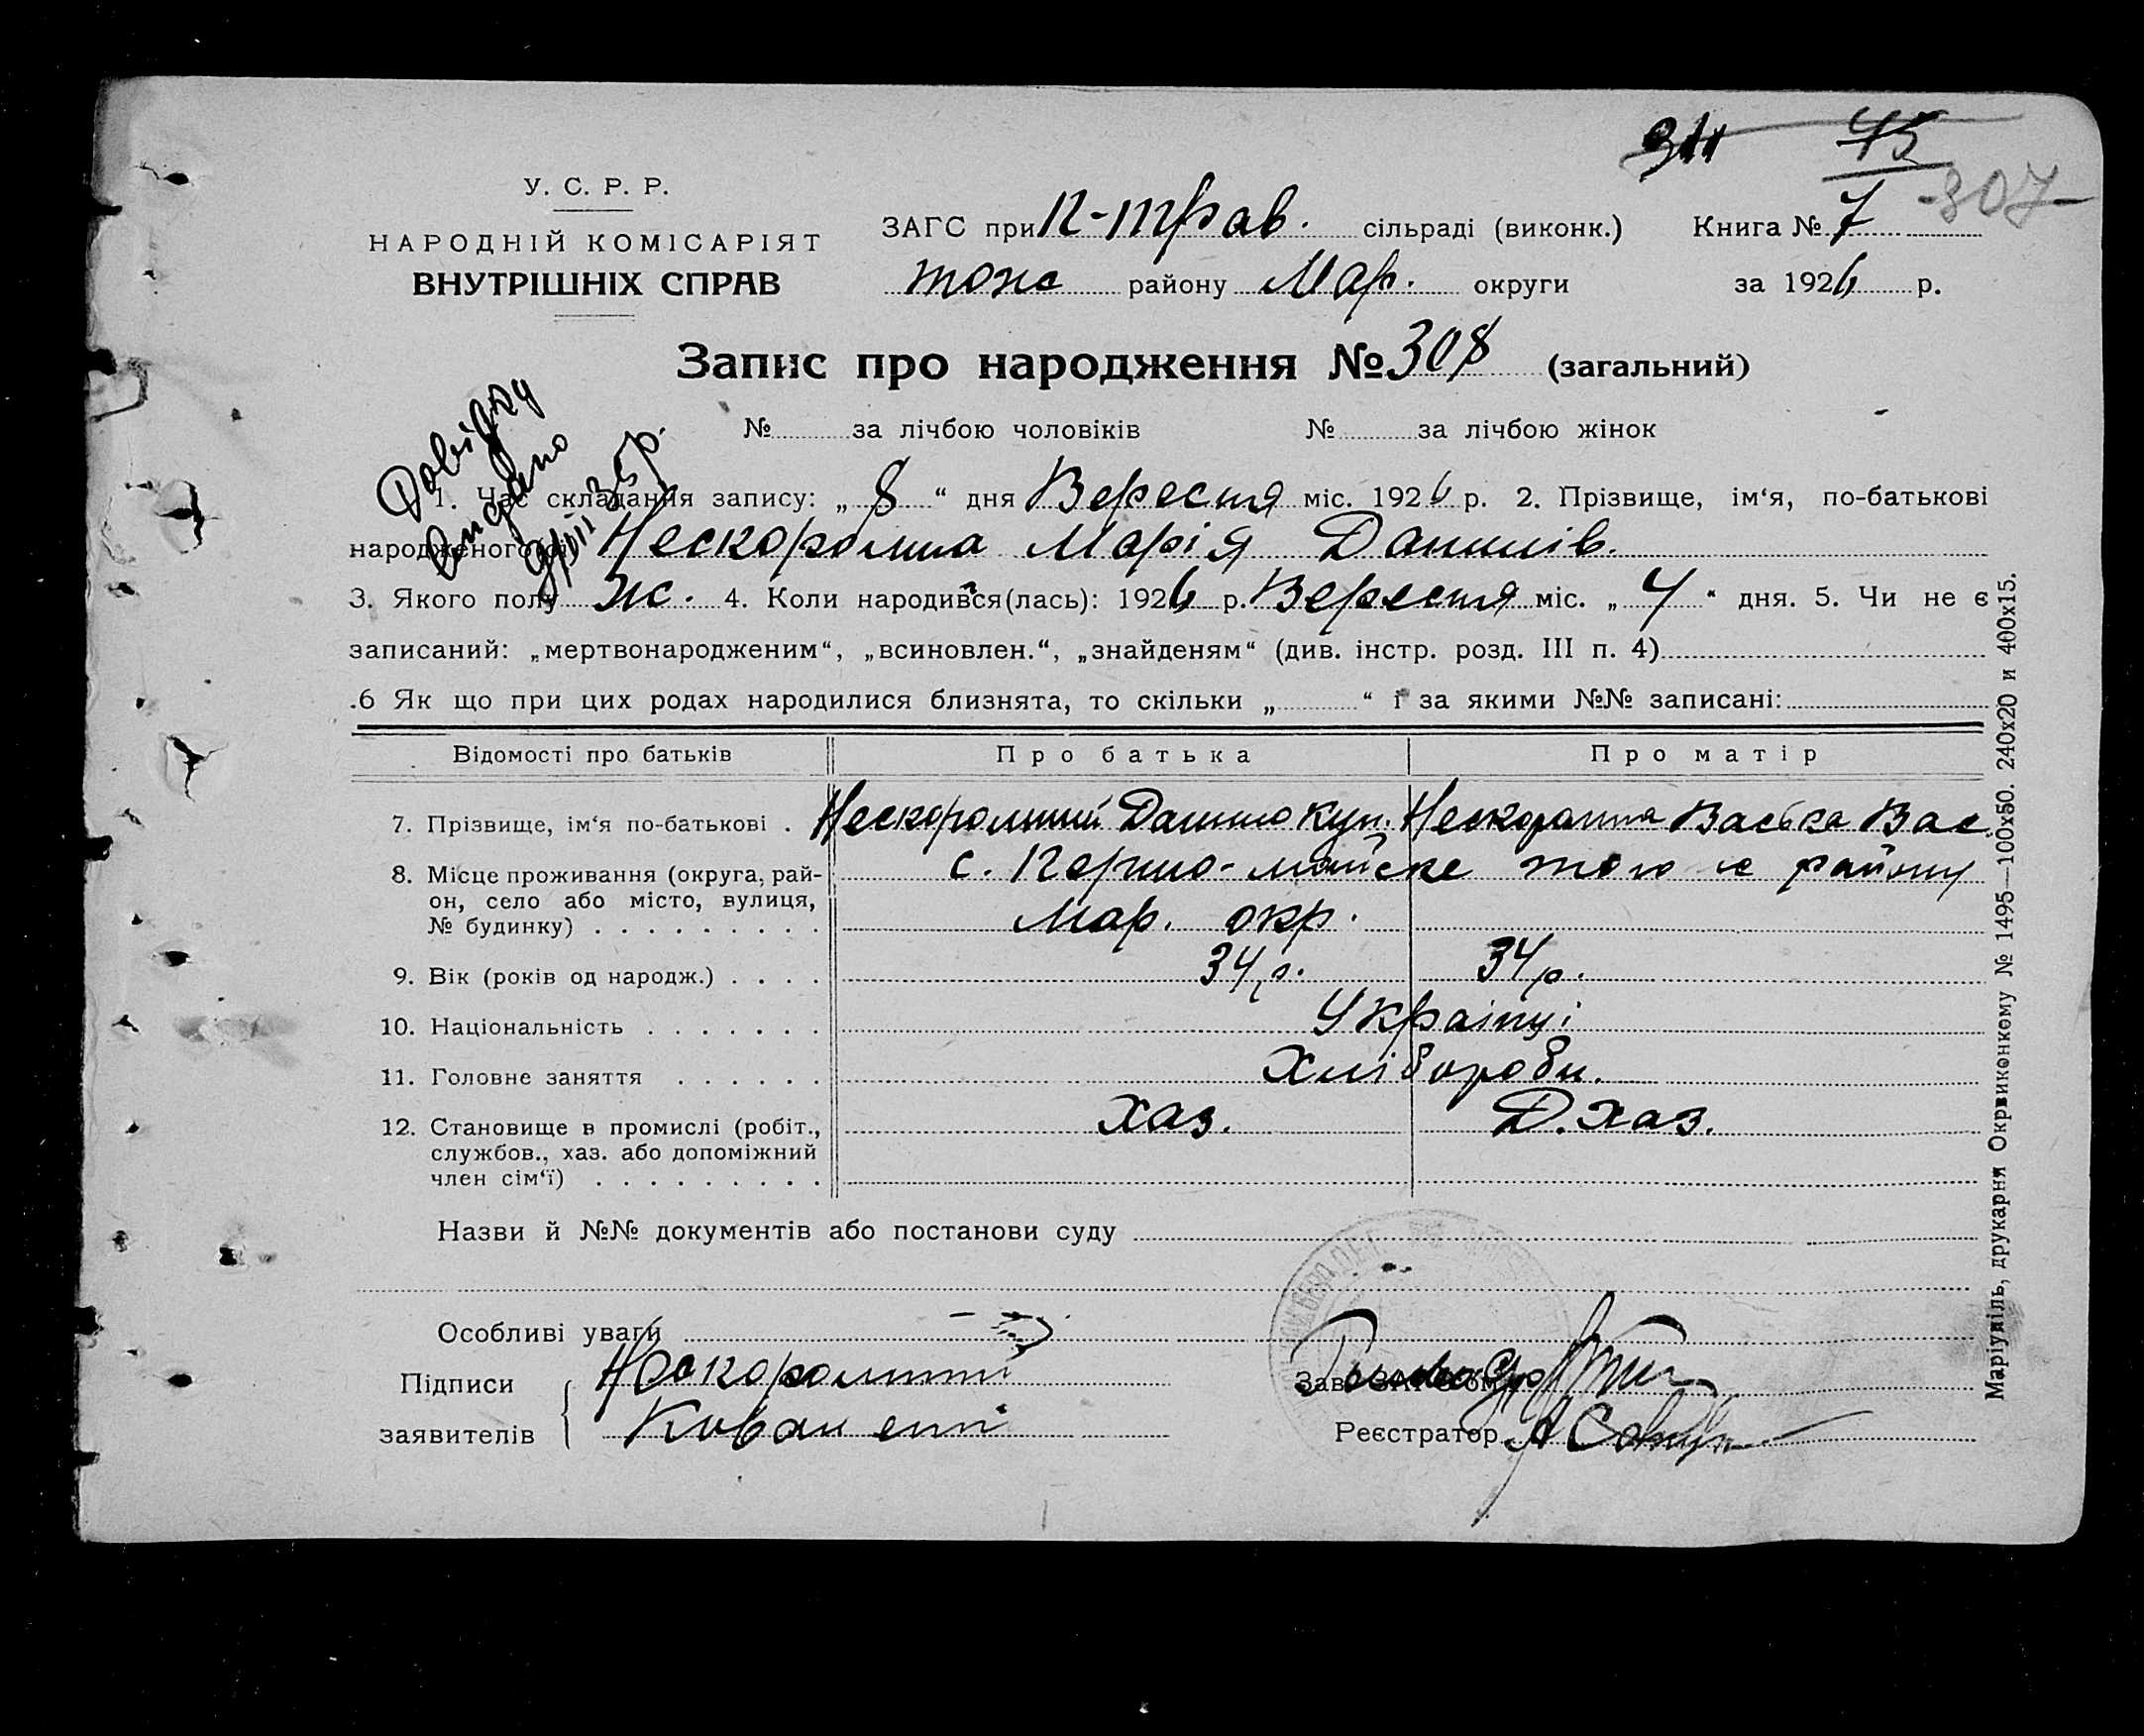 45
307
У. С. Р. Р.
НАРОДНІЙ КОМІСАРІЯТ
ВНУТРІШНІХ СПРАВ
ЗАГС при П-трав. сільраді (виконк.) Книга № 7
тоже району Мар. округи за 1926 р.
Запис про народження № 308 (загальний)
№ за лічбою чоловіків № за лічбою жінок
Довідку
видано
35 р.
1. Час складання запису: „ 8 “ дня Вересня міс. 1926 р. 2. Прізвище, ім‘я, по-батькові
народженого Нескоромна Марія Данилів.
3. Якого полу ж. 4. Коли народився(лась): 1926 р. Вересня міс. „ 4 “ дня. 5. Чи не є
записаний: „мертвонародженим“, „всиновлен.“, „знайденям“ (див. інстр. розд. III п. 4)
.6 Як що при цих родах народилися близнята, то скільки „ “ і за якими №№ записані:
Відомості про батьків Про батька Про матір
7. Прізвище, ім‘я по-батькові . Нескоромний Данило Куп. Нескоромна Васька Вас.
8. Місце проживання (округа, рай- с. Першо-майське того ж району
он, село або місто, вулиця, Мар. окр.
№ будинку) . . . . . . . . .
9. Вік (років од народж.) . . . . 34 р. 34 р.
10. Національність . . . . . . . Українці
11. Головне заняття . . . . . . Хлібороби.
12. Становище в промислі (робіт., хаз. Д. хаз.
службов., хаз. або допоміжний
член сім‘ї) . . . . . . . . .
Назви й №№ документів або постанови суду
Особливі уваги
Підписи Нескоромний
заявителів
Зав. ЗАГС‘ом
Реєстратор
Маріупіль, друкарня Окрвиконкому № 1495—100х50. 240х20 и 400х15.